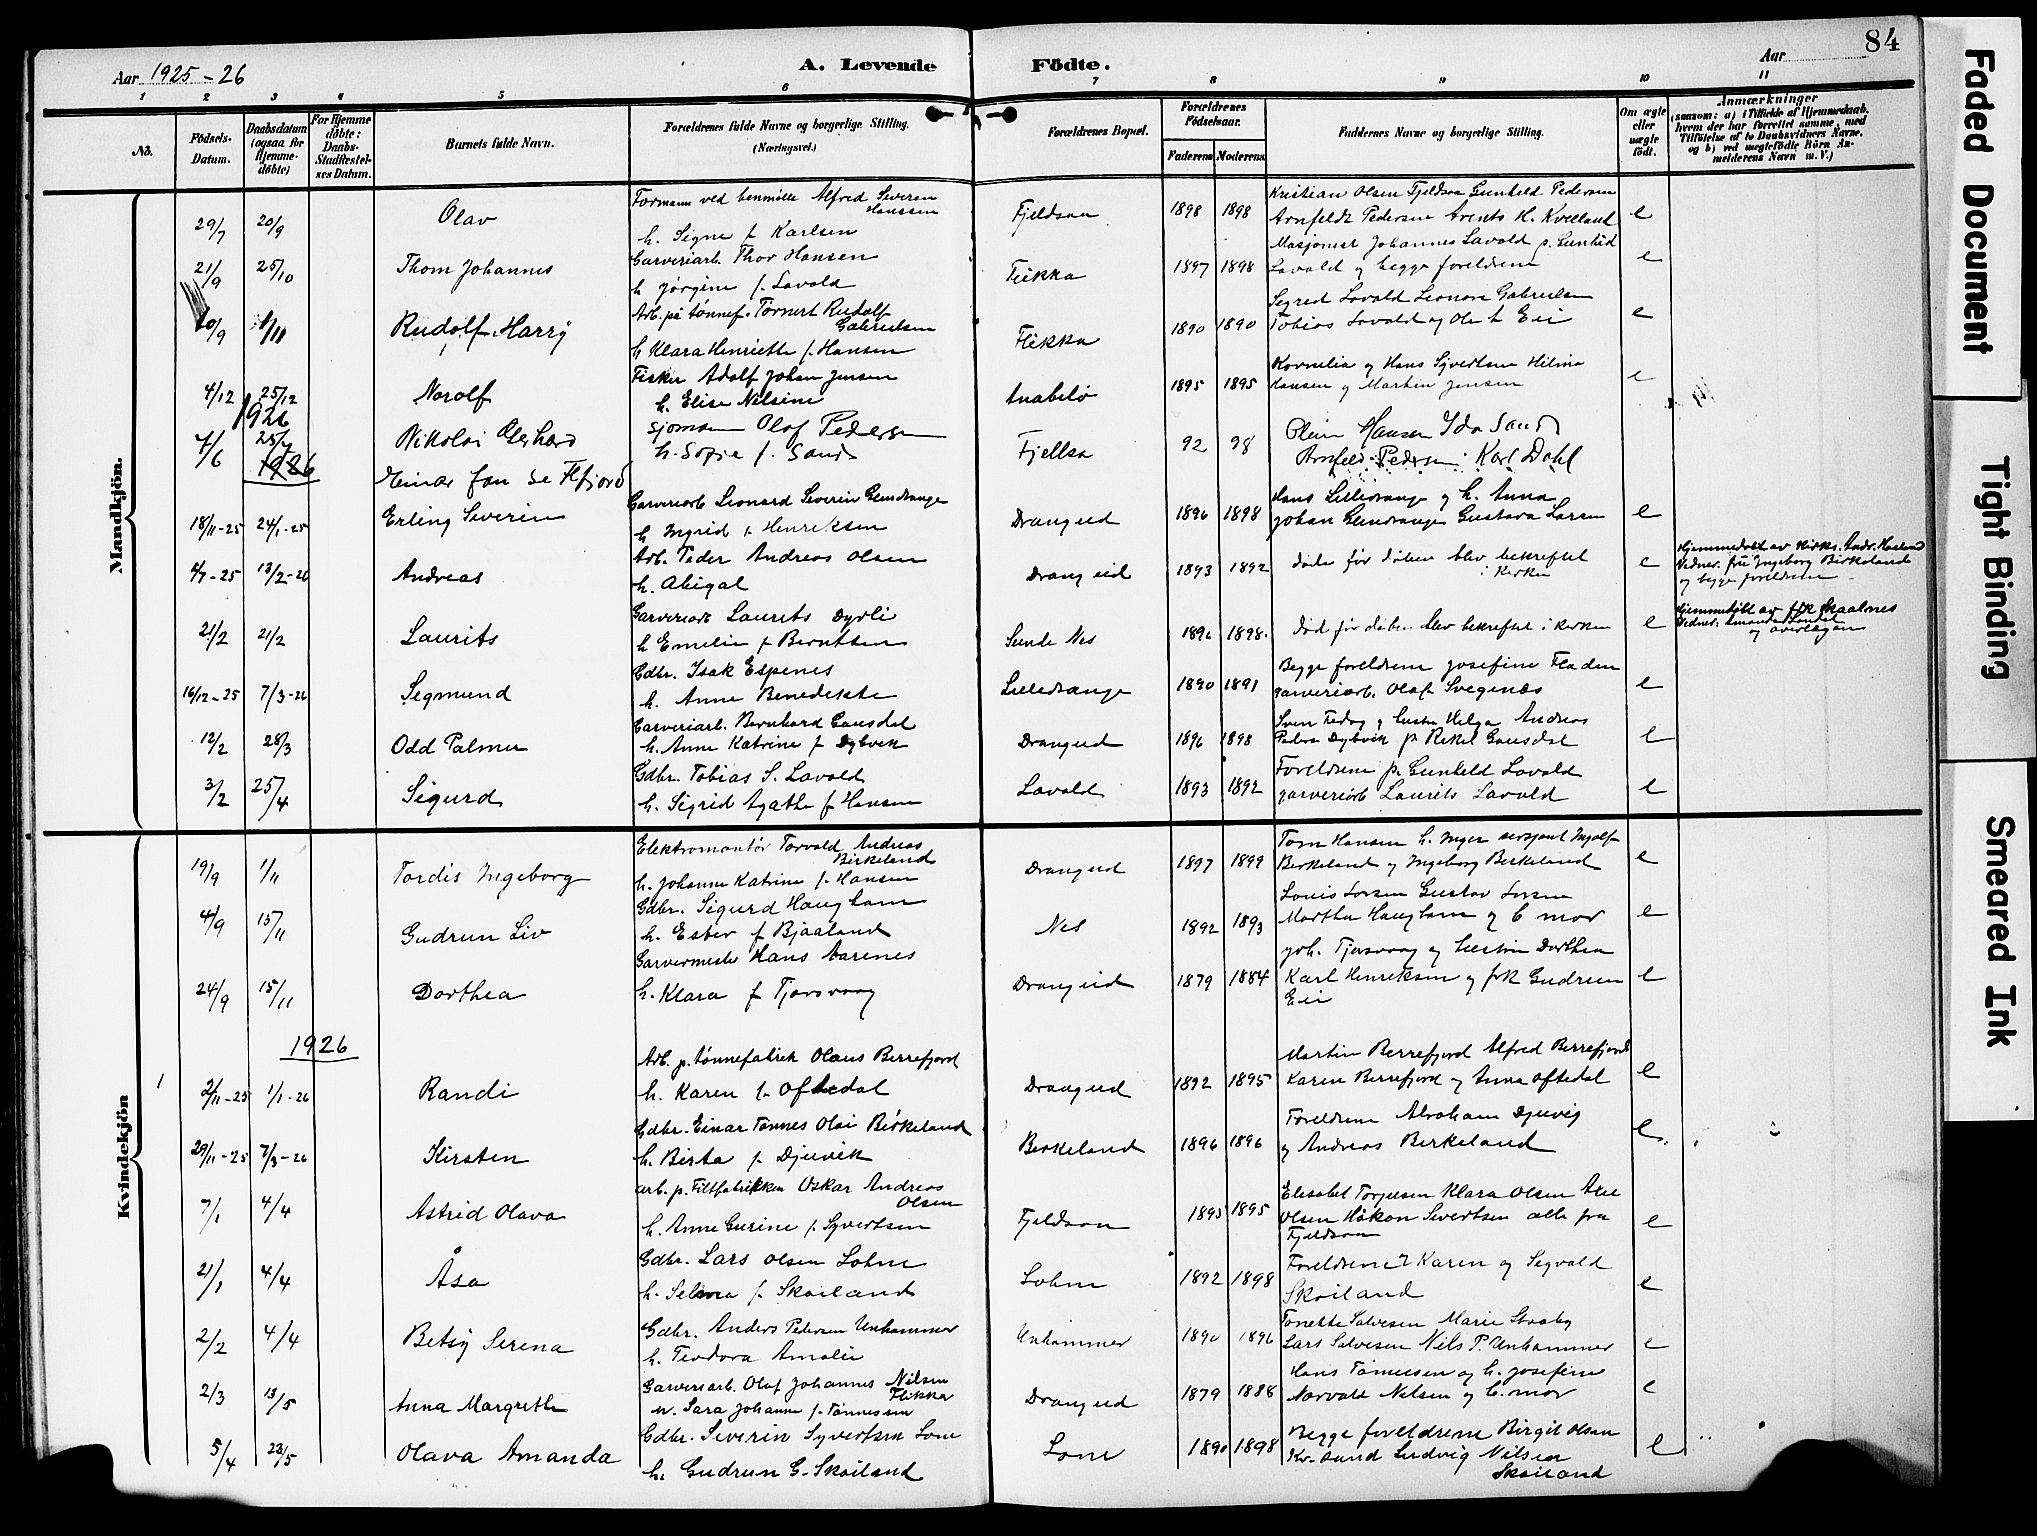 84
Aar 1925-26
A. Levende
Födte.
Aar
1 2 3 4 5 6 7 8 9 10 11
No.
Födsels-Datum.
Daabsdatum (ogsaa for Hjemme-döbte)
For Hjemme döbte: Daabs-Stadfæstelses Datum.
Barnets fulde Navn.
Forældrenes fulde Navne og borgerlige Stilling.
(Næringsvei.)
Forældrenes Bopæl.
Forældrenes Födselsaar.
Faderens Moderens
Faddernes Navne og borgerlige Stilling.
Om ægte eller uægte födt.
Anmærkninger
(saasom: a) i Tilfælde af Hjemmedaab, hvem der har forrettet samme, med Tilföielse af to Daabsvidners Navne, og b) ved uægtefödte Börn Anmelderens Navn m. V.)
Mandkjön.
29/7 20/9 Olav
Formann ved benmölle Alfred Severin Hanssen
h. Signe f. Karlsen
Fjeldsaa 1898 1898
Kristian Olsen Fjeldsaa Gunhild Pedersen
Arnfeldt Pedersen Arents H. Kvelland e
21/9 25/10 Thom Johannes
Garveriarb. Thor Hansen
h Jörgine f. Lavold
Flikka 1897 1898
Masjonist Johannes Lavold p. Gunhild
Lavold og begge foreldrene e
20/9 1/11 Rudolf Harry
Arb. på tönnef. Tönnes Rudolf Gabrielsen
h Klara Henriette f. Hansen
Flikka 1890 1890
Sigrid Lavold Leonora Gabrielsen
Tobias Lavold og Ole L Eie e
4/12 25/12 Norolf
Fisker Adolf Johan Jensen
h. Elise Nilsine
Anabelö 1895 1895
Kornelia og Hans Syvertsen Hilma
Hansen og Martin Jensen e
1926
7/6 25/7 Nikolai Gerhard
Sjömann Olaf Pedersen
h. Sofie f. Sand
Fjellsa 92 98
Olein Hansen Ida Sand
Arnfeld Pedersen Karl Dahl
1926
18/11-25 24/1-25 Erling Severin
Garveriarb Leonard Severin Glendrange
h Ingrid f. Henriksen
Drangeid 1896 1898
Hans Lilledrange og h. Anna
Johan Glendrange Gustava Larsen e
4/7-25 13/2-26 Andreas
Arb. Peder Andreas Olsen
h. Abigal
Drangeid 1893 1892
döde för dåben blev bekreftet i kirken e
Hjemmedöbt av Kirks. Andr. Haaland
Vidner. frü Ingeborg Birkeland
og begge foreldrene
21/2 21/2 Laurits
Garveriarb Laurits Dyrli
h Emelie f Berntsen
Sunde Nes 1896 1898.
död för dåben blev bekreftet i kirken e
Hjemmedöbt av frk Skaalnes
16/12-25 7/3-26 Segmund
Gdbr. Isak Espenes
h. Anne Benedekte
Lilledrange 1890 1891
Begge foreldrene Josefine Fladen
garveriarb. Olaf Svegenæs e
12/2 28/3 Odd Palmer
Garveriarb. Bernhard Gausdal
h. Anne Katrine f Dybvik
Drangeid 1896 1898
Peder Dybvik p. Rikel Gausdal e
3/2 25/4 Sigurd
Gdbr. Tobias S. Lavold
h. Sigrid Agathe f Hansen
Lavold 1893 1892
Foreldrene p. Gunheld Lavold
garveriarb Laurits Lavold e
Kvindekjön
19/9 1/11 Tordis Ingeborg
Elektromontör Torvald Andreas Birkeland
h. Johanne Katrine f. Hansen
Drangeid 1897 1899
Tom Hansen h. Inger sersjant Ingolf
Birkeland og Ingeborg Birkeland e
4/9 15/11 Gudrun Liv
Gdbr. Sigurd Haughom
h. Ester f Bjaaland
Nes 1892 1893
Louis Larsen Gustav Larsen
Martha Haughom og b mor e
24/9 15/11 Dorthea
Garvermester Hans Aarenes
h. Klara f Tjorsvaag
Drangeid 1879 1884
Joh. Tjorsvaag og hustru Dorthea
Karl Henriksen og frk Gudrun
Eie e
1926
1 2/11-25 1/1-26 Randi
Arb. p. tönnefabrik Olaus Berrefjord
h. Karen f. Oftedal
Drangeid 1892 1895
Martin Berrefjord Alfred Berrefjord
Karen Berrefjord og Anna Oftedal e
29/11-25 7/3-26 Kirsten
Gdbr. Einar Tönnes Olai Birkeland
h. Berta f. Djuvik
Birkeland 1896 1896
Foreldrene Abraham Djuvig
og Andreas Birkeland e
7/1 4/4 Astrid Olava
arb. p. Filtfabrikken Oskar Andreas Olsen
h. Anne Gurine f. Syvertsen
Fjeldsaa 1895 1895
Elisabet Torjusen Klara Olsen Ane
Olsen Håkon Sivertsen alle fra
Fjeldsaa e
21/1 4/4 Åsa
Gdbr. Lars Olsen Lohne
h. Selma f. Skoiland
Lohne 1892 1898
Foreldrene Karen og Segvald
Skoiland e
2/2 4/4 Betsy Serena
Gdbr. Anders Pedersen Unhammer
h. Teodora Amalie
Unhammer 1890 1896
Tonette Salvesen Marie Straby
Lars Salvesen Nils P. Unhammer e
2/3 13/5 Anna Margrethe
Garveriarb. Olaf Johannes Nilsen Flikka
h. Sara Johanne f. Tönnessen
Drangeid 1879 1886
Hans Tönnessen og h. Josefine
Norvald Nelsen og b. mor e
5/4 23/5 Olava Amanda
Gdbr. Severin Syvertsen Lone
h. Gudrun G. Skoiland
Lone 1890 1898
Begge foreldrene Birgit Olsen
Kv. sund Ludvig Nilsen
Skoiland e
Faded Document
Tight Binding
Smeared Ink